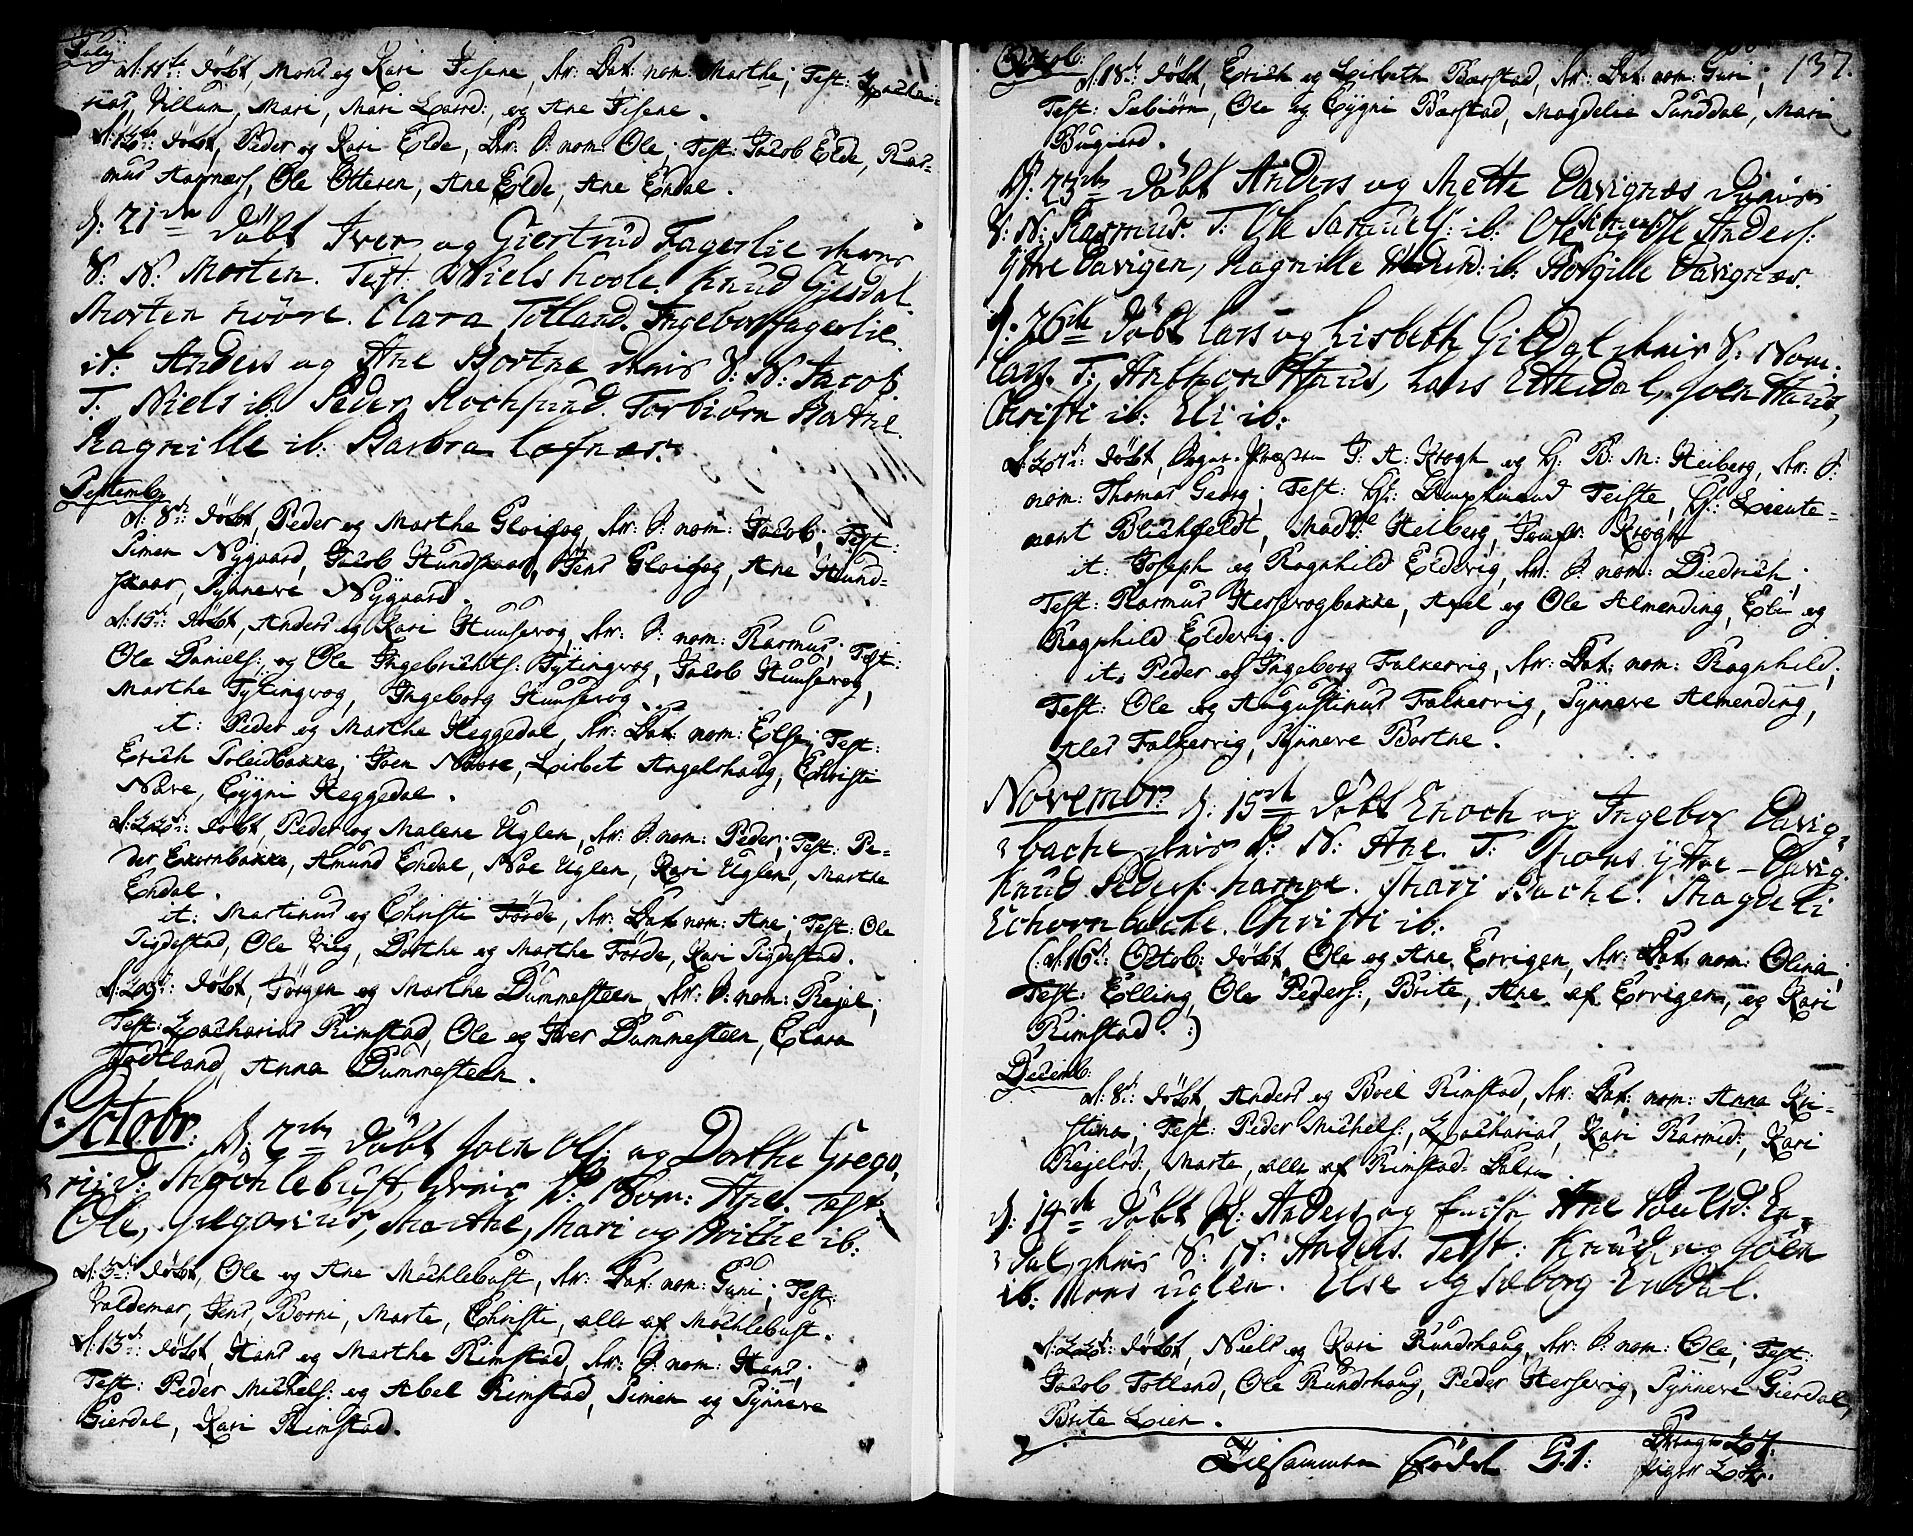 July
d: 11te: döbt, Mons og Kari Fisene, der: Dat: nom: Marthe; Test: Zacha-
rias, Villum, Mari, Mari Larsd:, og Ane Fisene.
d: 12te: döbt, Peder og Kari Elde, der: S: nom: Ole; Test: Jacob Elde, Ras-
mus Aarnæs, Ole Otteren, Ane Elde, Ane Endal.
d: 21de döbt Iver og Giertrud Fagerlie
S: N: Morten. Test: Niels Koole. Knud Gjesdal.
Morten Nööre. Clara Totland. Ingebor Fagerlie.
it: Anders og Ane Bortne S: N: Jacob.
T: Niels ib: Peder Rochsund. Torbiörn Bortne.
Ragnille ib: Barbra Lofnær.
Septemb:
d: 8de: döbt, Peder og Marthe Gloifog, der: S: nom: Jacob; Test:
Simen Nygaard, Jacob Hundskaar, Jens Gloifog, Ane Hund-
skaar, Synneve Nygaard.
d: 15de: döbt, Anders og Kari Huusevog, der: S: nom: Rasmus; Test:
Ole Daniels: og Ole Ingebrichts: Tytingvog, Jacob Huusevog,
Marthe Tytingvog, Ingeborg Huusevog.
it: Peder og Marthe Heggedal, der: Dat: nom: Else; Test:
Erich Soleidbakke, Joen Nævre, Lisbet Angelshaug, Christi
Nævre, Eygni Heggedal.
d: 22de: döbt, Peder og Malene Uglen, der: S: nom: Peder; Test: Pe-
der Ekornbakke, Amund Endal, Noe Uglen, Kari Uglen, Marthe
Endal.
it: Martinus og Christi Förde, der: Dat: nom: Ane; Test: Ole
Sigdestad, Ole Vig, Dorthe og Marthe Förde, Kari Sigdestad.
döbt, Jörgen og Marthe Dummesteen, der: S: nom: Rejel;
Test: Zacharias Rimstad, Ole og Iver Dummesteen, Clara
Todtland, Anna Dummesteen.
Octobr:
d: 2den döbt Joen Ols: og Dorthe Grego-
rii d: Möchlebust, S: Nom: Ane. Test:
Ole, Gregorius, Marthe, Mari og Brithe ib:
d: 3de: döbt, Ole og Ane Möchlebust, der: Dat: nom: Guri; Test:
Valdemar, Jens, Borni, Marte, Christi, alle af Möchlebust.
d: 13de: döbt, Hans og Marthe Rimstad, der: S: nom: Hans;
Test: Peder Michels: og Abel Rimstad, Simen og Synneve
Gierdal, Kari Rimstad.
137.
Octob:
d: 18de: döbt, Erich og Lisbeth Barstad, der: Dat: nom: Guri;
Test: Sebiörn, Ole og Eygni Barstad, Magdelie Sunddal, Mari
d: 23de döbt Anders og Mette Davignæs
S: N: Rasmus. T: Ole Samuels: ib: Ole og Ole Anders:
Ytre Davigen, Ragnille ib: Borgille Davignæs.
d: 26de döbt Lars og Lisbeth Gildal S: Nom:
Lars. T: Anthon Haus, Lars Ettedal, Joen Haus,
Christi ib: Eli ib:
d: 27de: döbt, T: A: Krogh og H: B: M: Heiberg, der: S:
nom: Thomas Georg; Test: Hr: Teiste, Hr: Lieute-
nant Blichfeldt, Mad: Heiberg, Jomfr: Krogh
it: Joseph og Ragnhild Eldevig, der: S: nom: Diedrich;
Test: Rasmus Hessevogbakke, Axel og Ole Almending, Eli og
Ragnhild Eldevig.
it: Peder og Ingeborg Falkevig, der: Dat: nom: Ragnhild;
Test: Ole og Augustinus Falkevig, Synneve Almending,
Ales Falkevig, Synneve Borthe.
Novembr: d: 15de döbt Enoch og Ingebor Davig-
bache N: Ane. T: Mons Ytre-Davig.
Knud Peders: Marj Bache. Magdeli
Echornbache. Christi ib:
(: d: 16de: Octob: döbt, Ole og Ane Errigen, der: Dat: nom: Olina;
Test: Elling, Ole Peders:, Brite, Ane af Errigen, og Kari
Rimstad. :)
Decemb:
d: 8de: döbt, Anders og Boel Rimstad, der: Dat: nom: Anna Kri-
stina; Test: Peder Michels:, Zacharias, Kari Rasmd:, Kari
Rejelsd:, Marte, alle af Rimstad.
d: 19de döbt Anders og Ane En-
dal, S: N: Anders. Test: Knud og Joen
ib: Mons Uglen. Else og Seborg Endal.
d: 22de: döbt, Niels og Kari Rundshaug, der: S: nom: Ole; Test:
Jacob Totland, Ole Rundshaug, Peder Hessevig, Synneve Gierdal,
Brite Lien.
Tilsammen Födde 51: Drenge 27.
Piger 24.